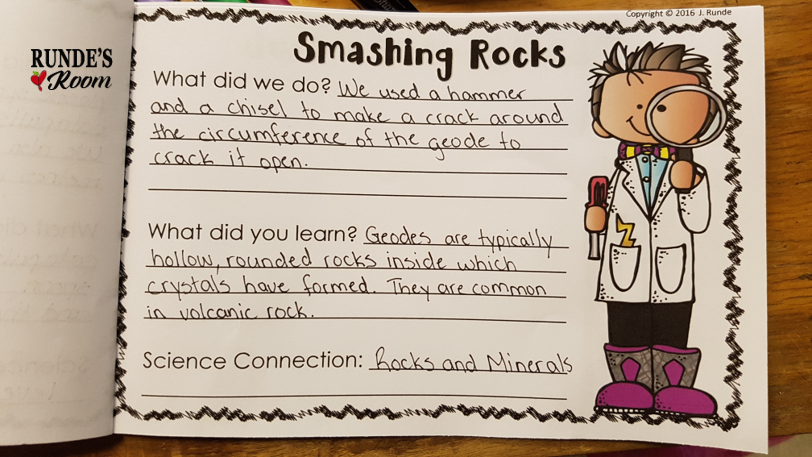 Copyright © 2016 J. Runde
RUNDE'S
Room
Smashing Rocks
What did we do? We used a hammer
and a chisel to make a crack around
the circumference of the geode to
crack it open.
What did you learn? Geodes are typically
hollow, rounded rocks inside which
crystals have formed. They are common
in volcanic rock.
Science Connection: Rocks and Minerals